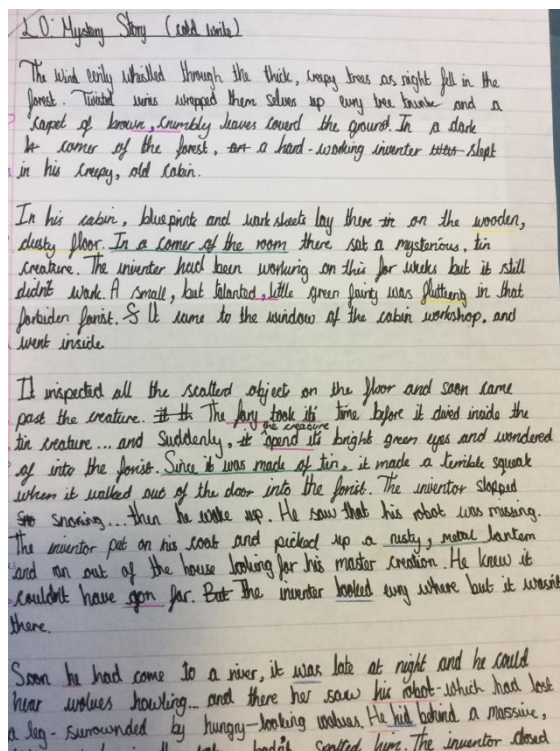 LO: Mystery Story (cold write)
The wind eerily whistled through the thick, creepy trees as night fell in the
forest. Twisted vines wrapped them selves up evry tree trunk and a
carpet of brown, crumbly leaves coverd the ground. In a dark
corner of the forest, a hard-working inventer slept
in his creepy, old cabin.
In his cabin, blueprints and work sheets lay there on the wooden,
dusty floor. In a corner of the room there sat a mysterious, tin
creature. The inventer had been working on this for weeks but it still
didn't work. A small, but talanted, little green fairy was fluttering in that
forbiden forist. It came to the window of the cabin workshop, and
went inside
It inspected all the scatterd object on the floor and soon came
past the creature. The fary took its time before it dived inside the
tin creature... and Suddenly, the creature opend its bright green eyes and wondered
of into the forist. Since it was made of tin, it made a terrible squeak
when it walked out of the door into the forist. The inventor stopped
snoring... then he woke up. He saw that his robot was missing.
The inventor put on his coat and picked up a rusty, metal lantern
and ran out of the house looking for his master creation. He knew it
couldn't have gon far. But The inventer looked evry where but it wasn't
there.
Soon he had come to a river, it was late at night and he could
hear wolves howling... and there her saw his robot-which had lost
a leg- surrounded by hungry-looking wolves. He hid behind a massive,
hadn't spotted him. The inventor closed